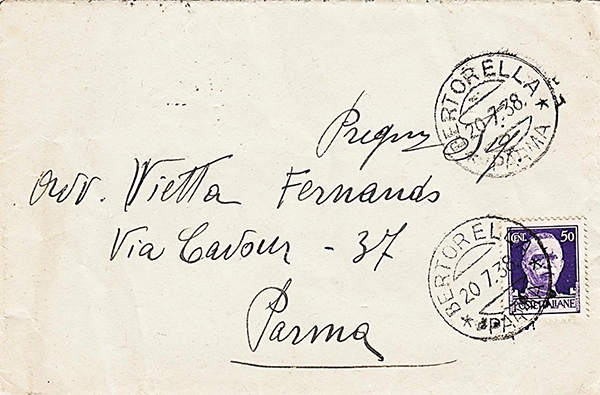 BERTORELLA
20.7.38.
* (PARMA
Pregmo
Avv. Vietta Fernando
Via Cavour - 37
Parma
BERTORELLA
20.7.38
* (PARMA) *
CENT. 50
POSTE ITALIANE